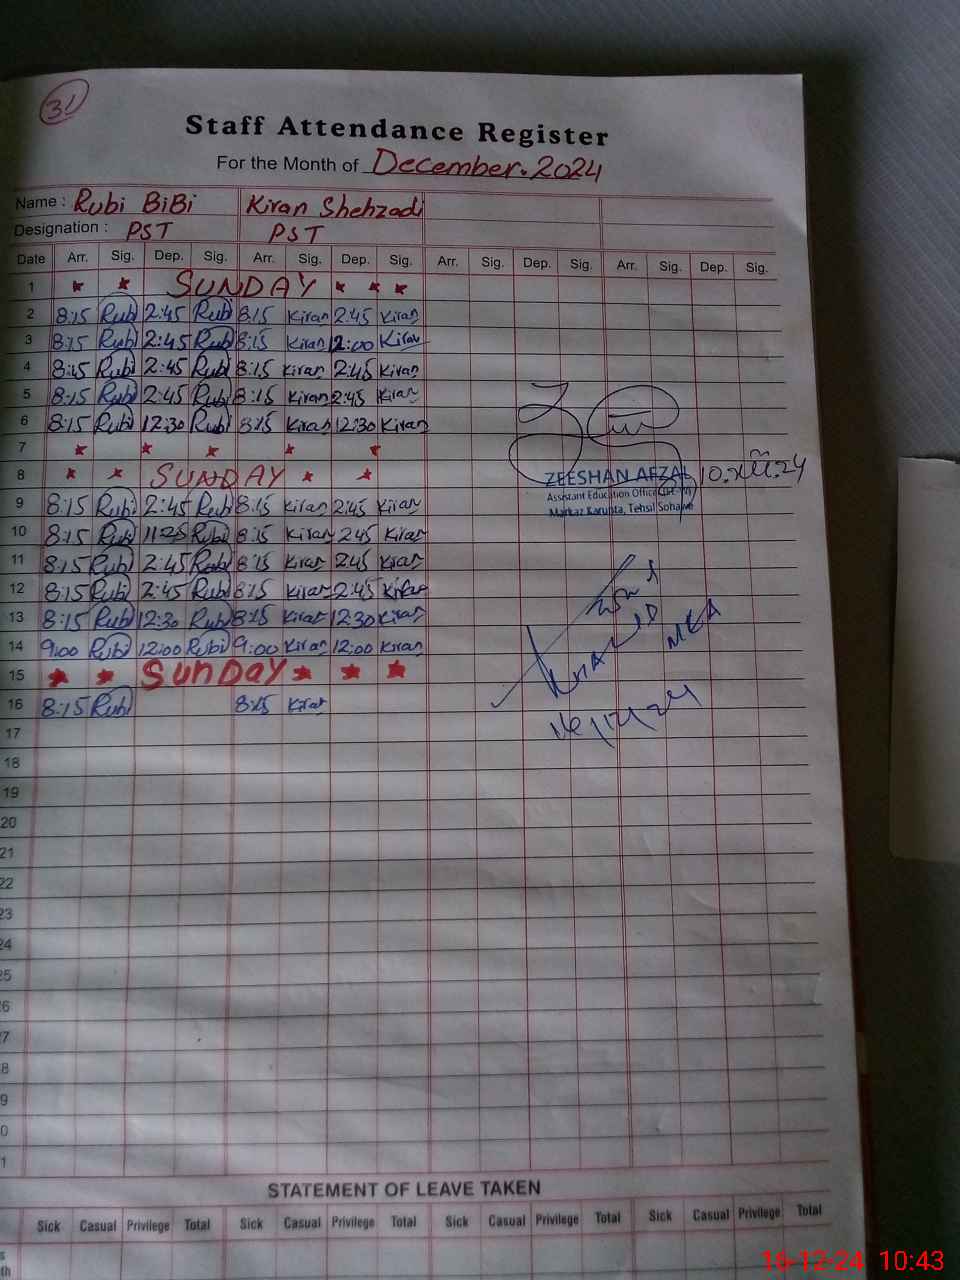 31
Staff Attendance Register
For the Month of December.2024
Name : Rubi BiBi Kiran Shehzadi
Designation : PST PST
Date Arr. Sig. Dep. Sig. Arr. Sig. Dep. Sig. Arr. Sig. Dep. Sig. Arr. Sig. Dep. Sig.
1 SUNDAY
2 8:15 Rubi 2:45 Rubi 8:15 Kiran 2:45 Kiran
3 8:15 Rubi 2:45 Rubi 8:15 Kiran 12:00 Kiran
4 8:15 Rubi 2:45 Rubi 8:15 Kiran 2:45 Kiran
5 8:15 Rubi 2:45 Rubi 8:15 Kiran 2:45 Kiran
6 8:15 Rubi 12:30 Rubi 8:15 Kiran 12:30 Kiran
7
8 SUNDAY
ZEESHAN AFZAL 10.xii.24
Assistant Education Officer
Markaz Karunta, Tehsil Sohawa
9 8:15 Rubi 2:45 Rubi 8:15 Kiran 2:45 Kiran
10 8:15 Rubi 11:25 Rubi 8:15 Kiran 2:45 Kiran
11 8:15 Rubi 2:45 Rubi 8:15 Kiran 2:45 Kiran
12 8:15 Rubi 2:45 Rubi 8:15 Kiran 2:45 Kiran
13 8:15 Rubi 12:30 Rubi 8:15 Kiran 12:30 Kiran
14 9:00 Rubi 12:00 Rubi 9:00 Kiran 12:00 Kiran
MEA
15 SUNDAY
16 8:15 Rubi 8:15 Kiran
17
18
19
20
21
22
23
24
25
6
7
8
9
0
1
STATEMENT OF LEAVE TAKEN
Sick Casual Privilege Total Sick Casual Privilege Total Sick Casual Privilege Total Sick Casual Privilege Total
16-12-24 10:43